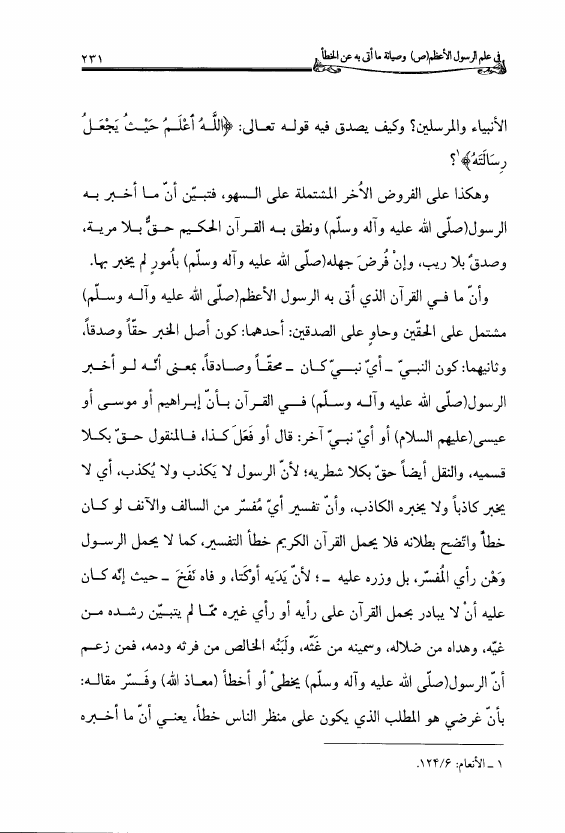 في علم الرسول الأعظم(ص) وصيانة ما أتى به عن الخطأ
٢٣١
الأنبياء والمرسلين؟ وكيف يصدق فيه قوله تعالى: ﴿اللَّهُ أَعْلَمُ حَيْثُ يَجْعَلُ
رِسَالَتَهُ﴾١؟
وهكذا على الفروض الأُخر المشتملة على السهو، فتبيّن أنّ ما أخبر به
الرسول(صلّى الله عليه وآله وسلّم) ونطق به القرآن الحكيم حقٌّ بلا مرية،
وصدقٌ بلا ريب، وإنْ فُرضَ جهله(صلّى الله عليه وآله وسلّم) بأُمورٍ لم يخبر بها.
وأنّ ما في القرآن الذي أتى به الرسول الأعظم(صلّى الله عليه وآله وسلّم)
مشتمل على الحقّين وحاوٍ على الصدقين: أحدهما: كون أصل الخبر حقّاً وصدقاً،
وثانيهما: كون النبيّ ـ أيّ نبيّ كان ـ محقّاً وصادقاً، بمعنى أنّه لو أخبر
الرسول(صلّى الله عليه وآله وسلّم) في القرآن بأنّ إبراهيم أو موسى أو
عيسى(عليهم السلام) أو أيّ نبيّ آخر: قال أو فَعَلَ كذا، فالمنقول حقّ بكلا
قسميه، والنقل أيضاً حقّ بكلا شطريه؛ لأنّ الرسول لا يَكذب ولا يُكذب، أي لا
يخبر كاذباً ولا يخبره الكاذب، وأنّ تفسير أيّ مُفسّر من السالف والآنف لو كان
خطأً واتّضح بطلانه فلا يحمل القرآن الكريم خطأ التفسير، كما لا يحمل الرسول
وَهْن رأي المُفسّر، بل وزره عليه ـ؛ لأنّ يَدَيه أوكَتا، و فاه نَفَخَ ـ حيث إنّه كان
عليه أنْ لا يبادر بحمل القرآن على رأيه أو رأي غيره ممّا لم يتبيّن رشده من
غيّه، وهداه من ضلاله، وسمينه من غَثّه، ولَبَنُه الخالص من فرثه ودمه، فمن زعم
أنّ الرسول(صلّى الله عليه وآله وسلّم) يخطئ أو أخطأ (معاذ الله) وفَسّر مقاله:
بأنّ غرضي هو المطلب الذي يكون على منظر الناس خطأ، يعني أنّ ما أخبره
١ ـ الأنعام: ١٢۴/۶.